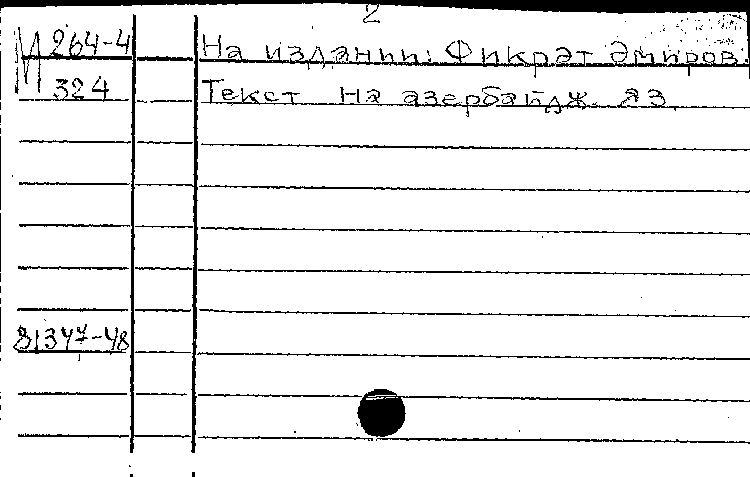 2
М 264-4
324
На издании: Фикрәт Әмиров.
Текст на азербайдж. яз.
81347-48